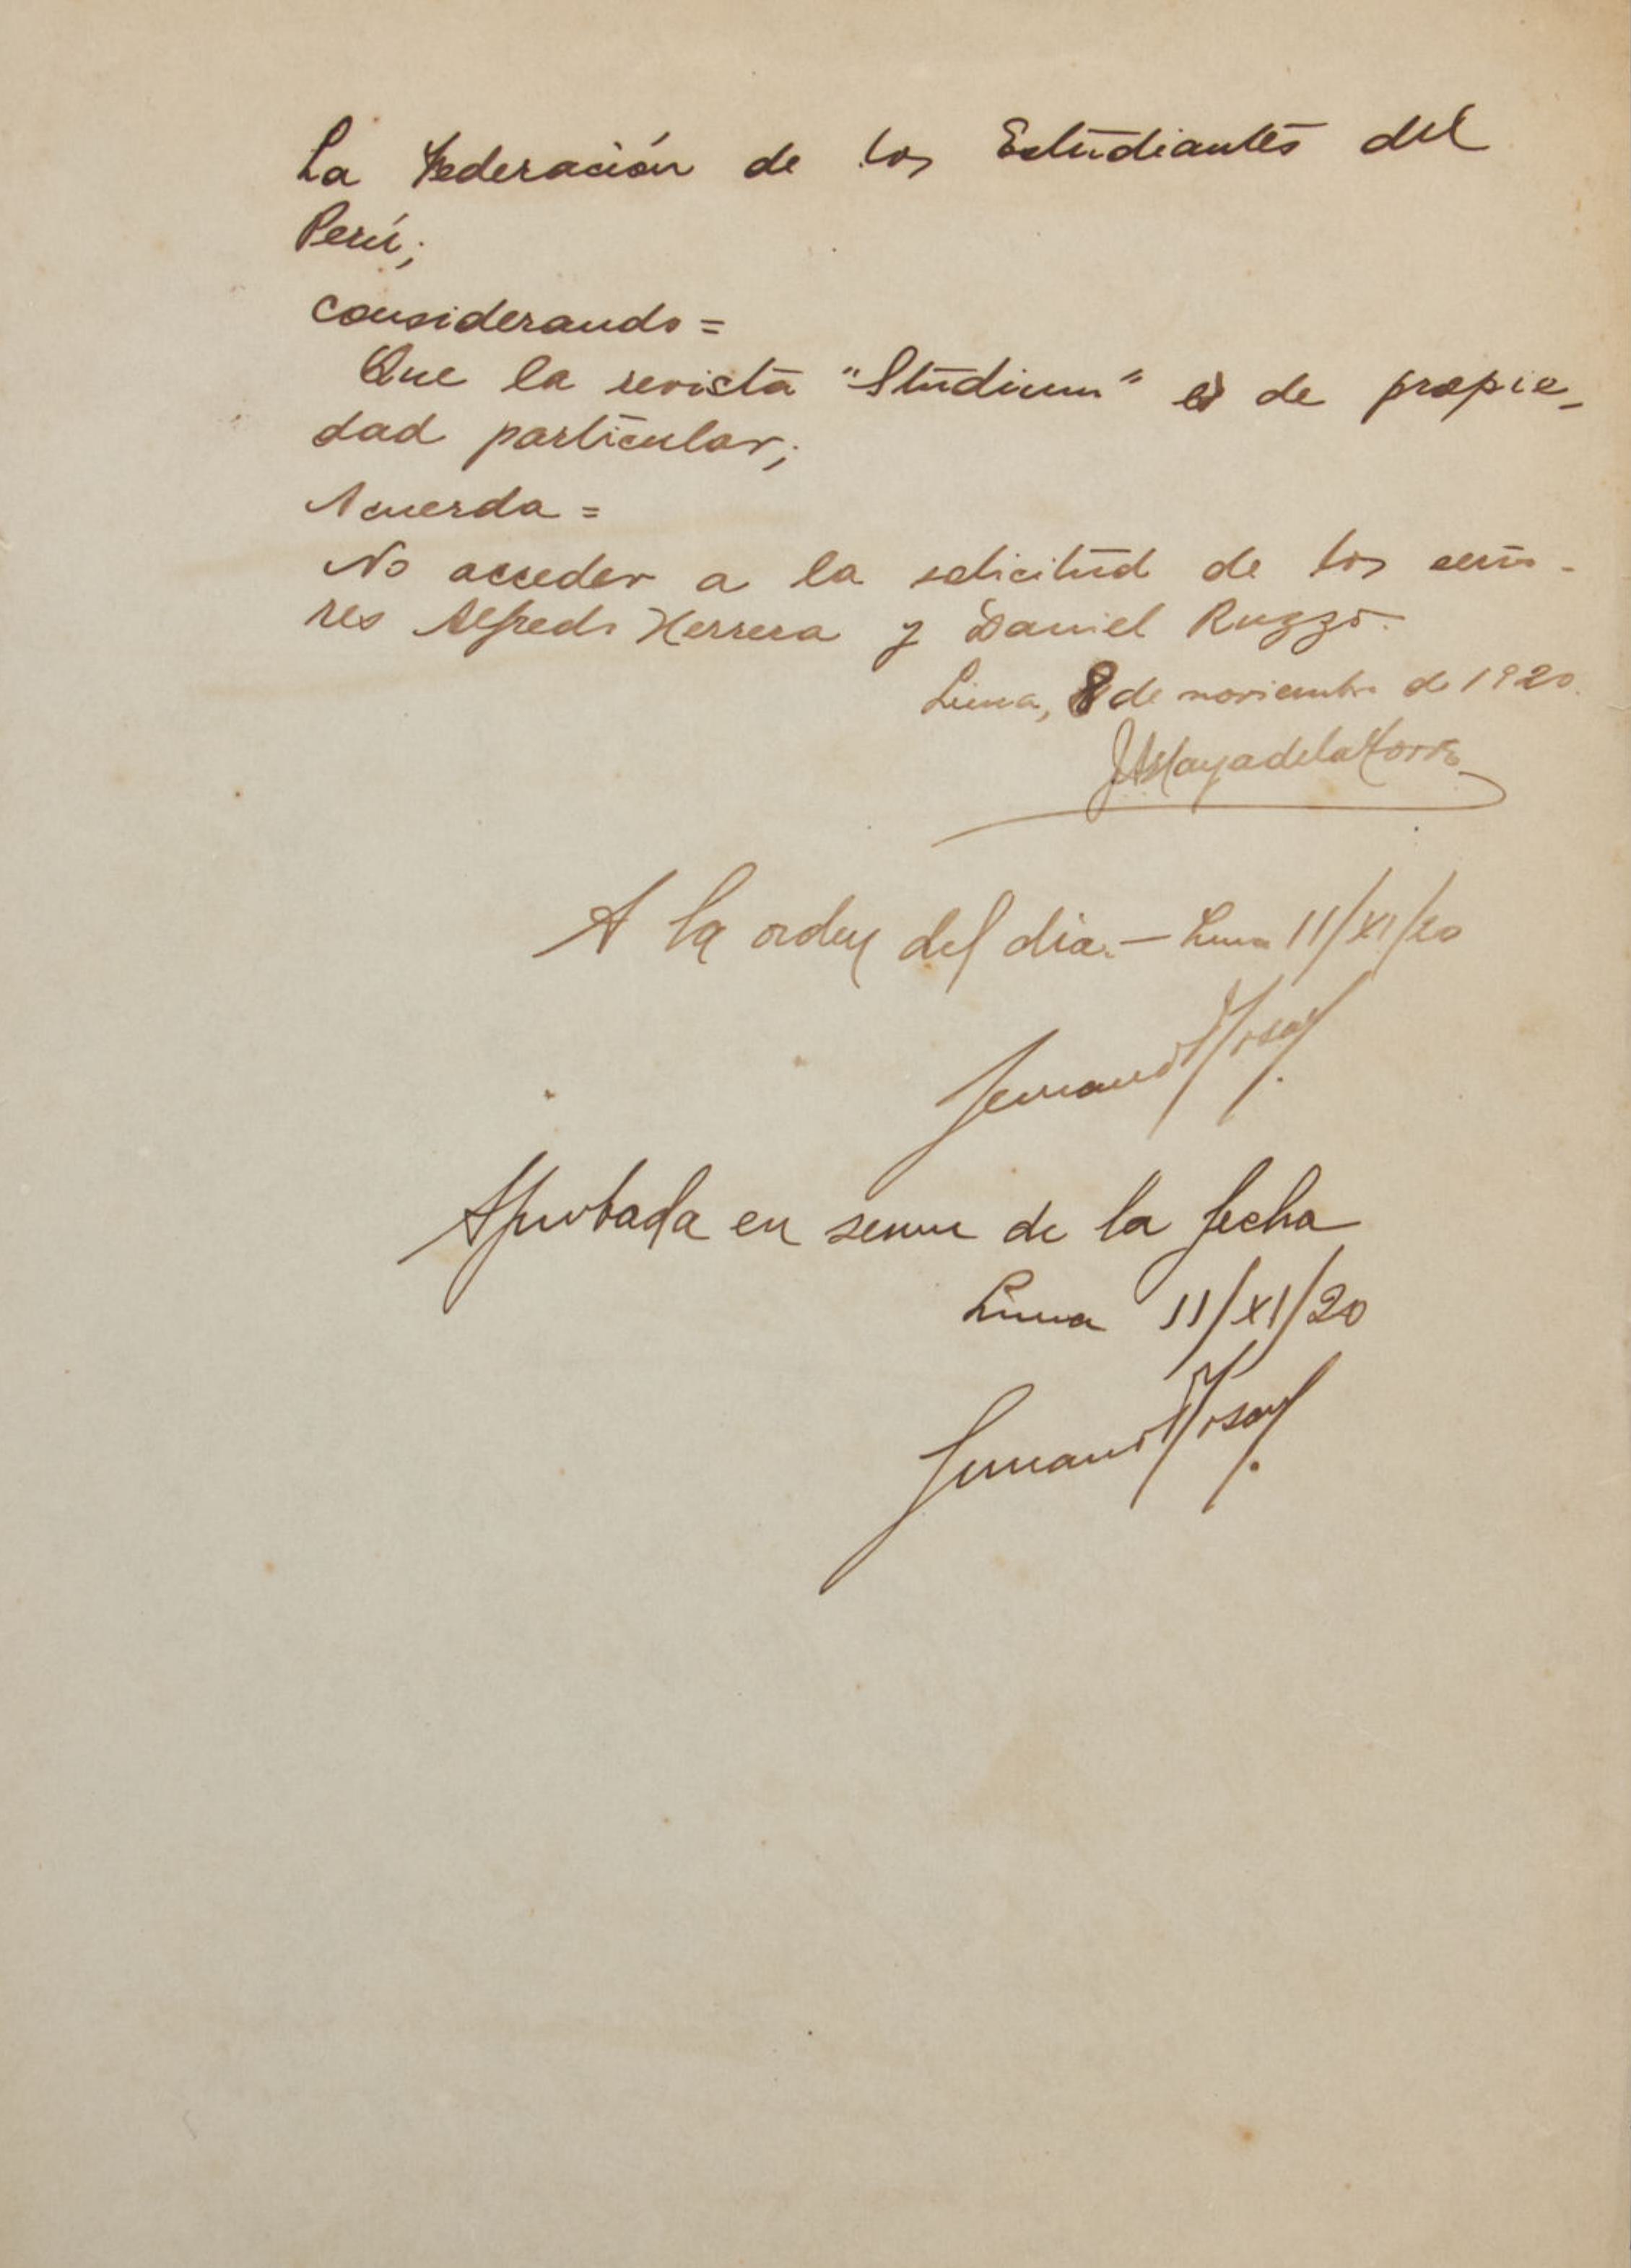 La Federación de los Estudiantes del
Perú;
considerando=
Que la revista "Studium" es de propie-
dad particular;
Acuerda=
No acceder a la solicitud de los seño-
res Alfredo Herrera y Daniel Ruzzo.
Lima, 8 de noviembre de 1920.
JAHayadelaTorre
A la orden del dia.— Lima 11/XI/20
Aprobada en sesion de la fecha
Lima 11/XI/20